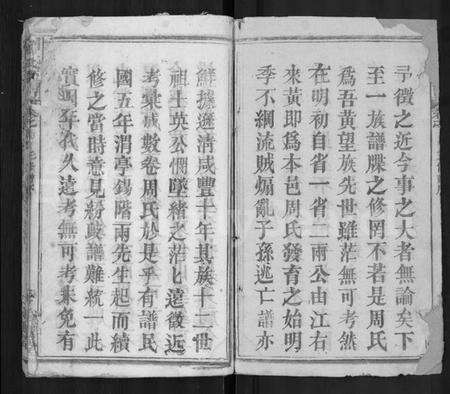 尋徵之近今事之大者無論矣下
至一族譜牒之修罔不若是周氏
爲吾黃望族先世雖茫無可考然
在明初自省一省二兩公由江右
來黃卽爲本邑周氏發育之始明
季不綱流賊煽亂子孫逃亡譜亦
鮮據遜清咸豐十年其族十二世
祖士英公憫墜緒之茫匕遠徵近
考彙成數卷周氏於是乎有譜民
國五年渭亭錫階兩先生起而續
修之當時意見紛歧譜難統一此
實因年代久遠考無可考未免有